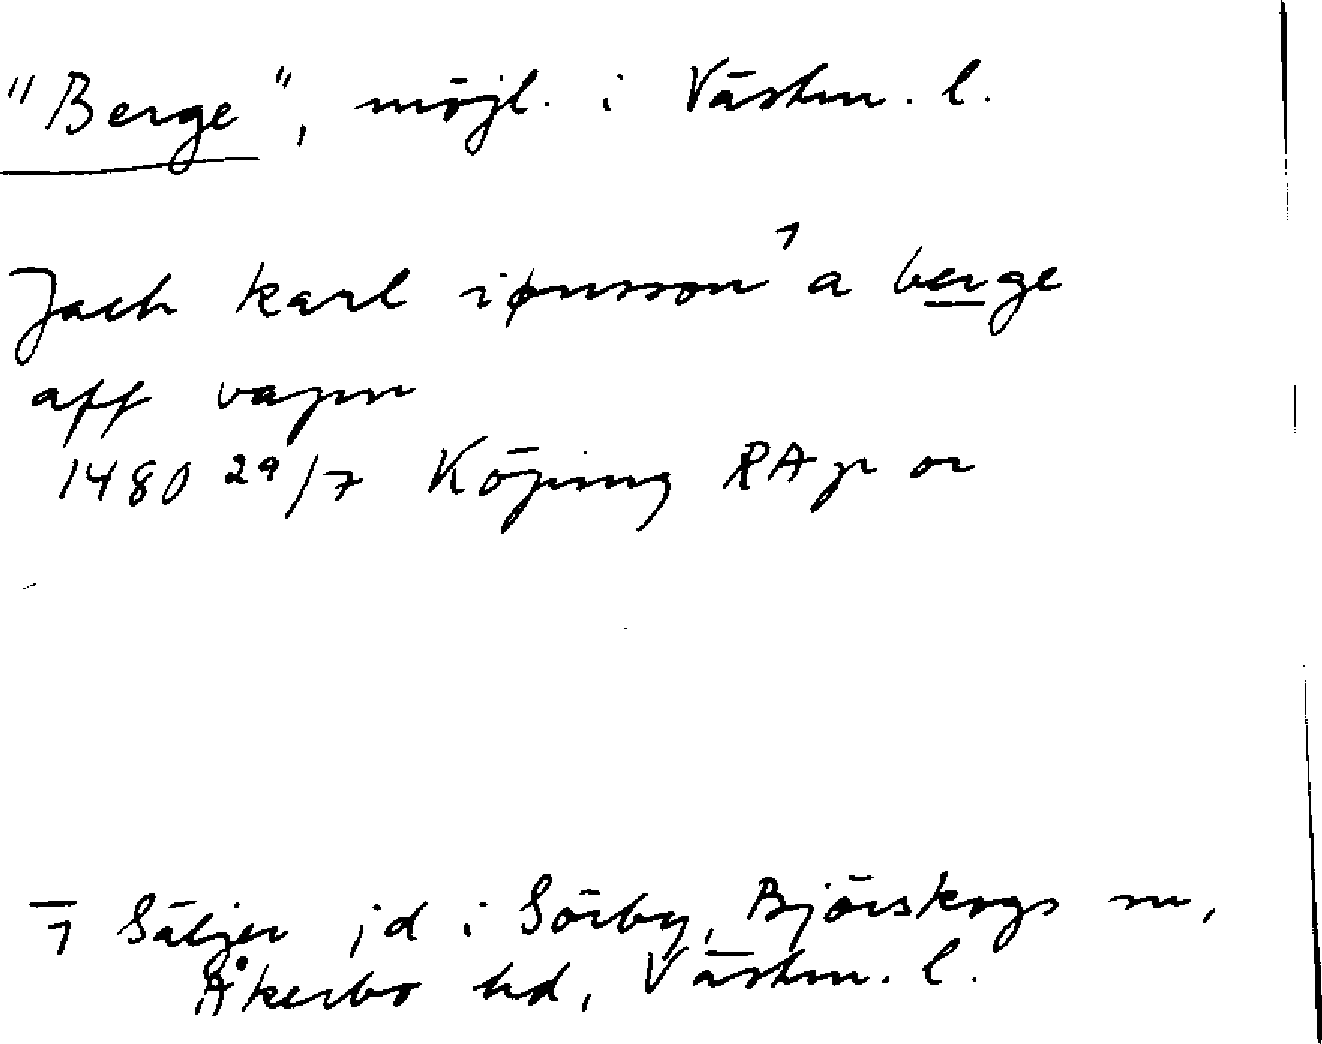 "Berge", möjl. i Västm. l.
Jach karl iønsson ¹ a berge
aff vapn
1480 29/7 Köping RA p or
1 Säljer jd i Sörby, Björskogs sn,
Åkerbo hd, Västm. l.